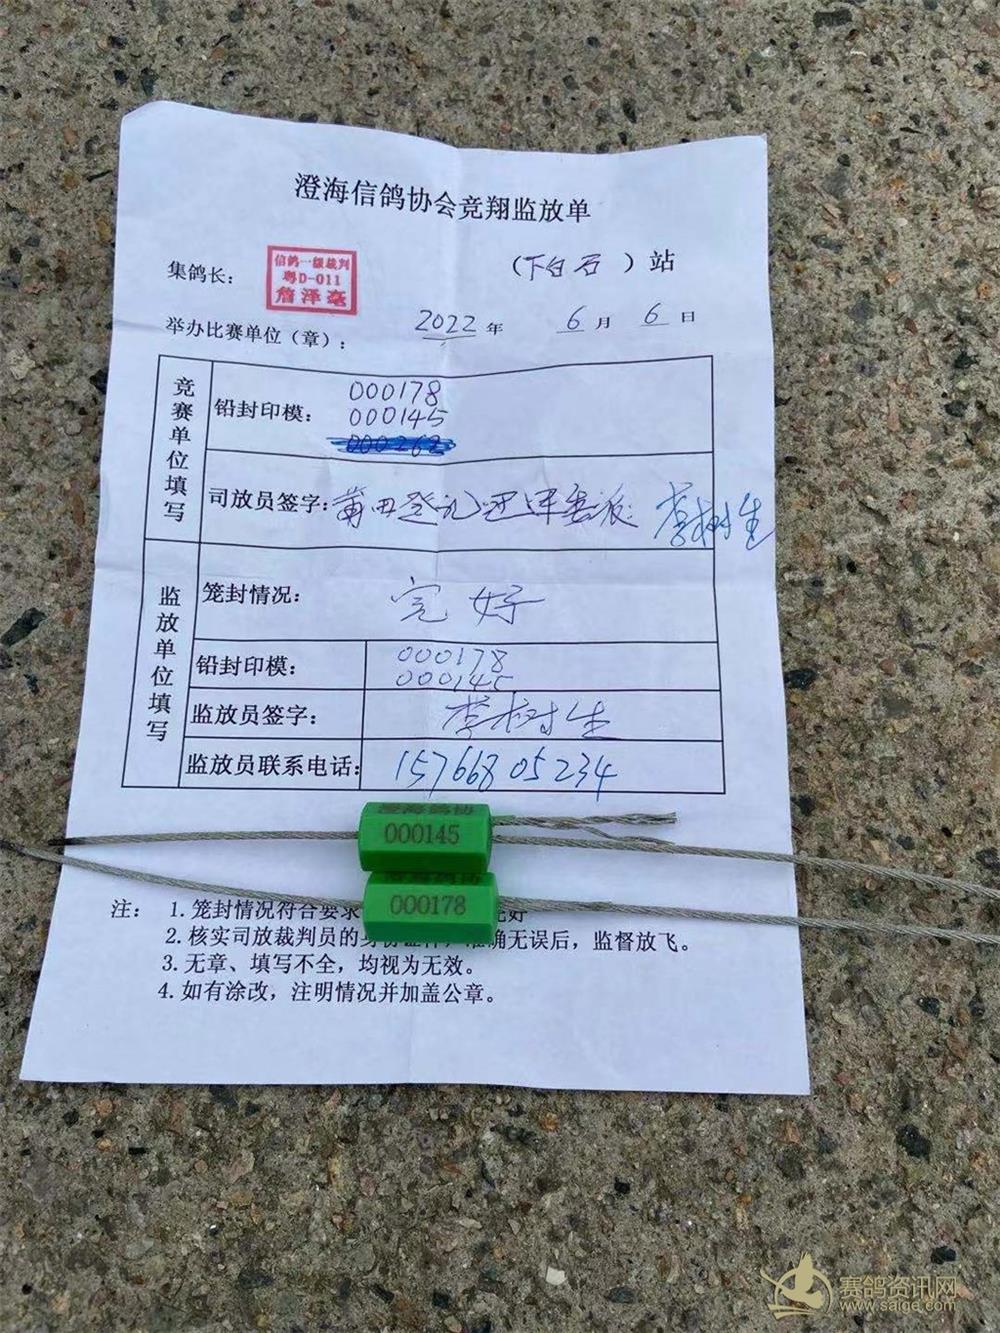 澄海信鸽协会竞翔监放单
集鸽长：
信鸽一级裁判
粤D-011
詹泽毫
（下白石）站
举办比赛单位（章）：
2022年 6月 6日
竞赛单位填写
铅封印模：
000178
000145
000262
司放员签字：
李树生
监放单位填写
笼封情况：完好
铅封印模：
000178
000145
监放员签字：李树生
监放员联系电话：15766805234
澄海鸽协
000145
000178
注：1.笼封情况符合要求
2.核实司放裁判员的身份证件，准确无误后，监督放飞。
3.无章、填写不全，均视为无效。
4.如有涂改，注明情况并加盖公章。
赛鸽资讯网
www.saige.com